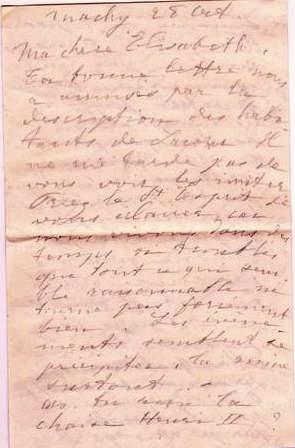 Machy 28 Oct.
Ma chère Elisabeth,
Ta bonne lettre nous
a amusés par ta
description des habi
tants de Il
ne me tarde pas de
vous voir les imiter
Priez le St Esprit de
vous éclairer, car
nous vivons dans des
temps si troublés
que tout ce qui sem
ble raisonnable ne
tourne pas forcément
bien. Les événe
ments semblent se
précipiter, la
surtout.
as-tu la
chaise Henri II ?